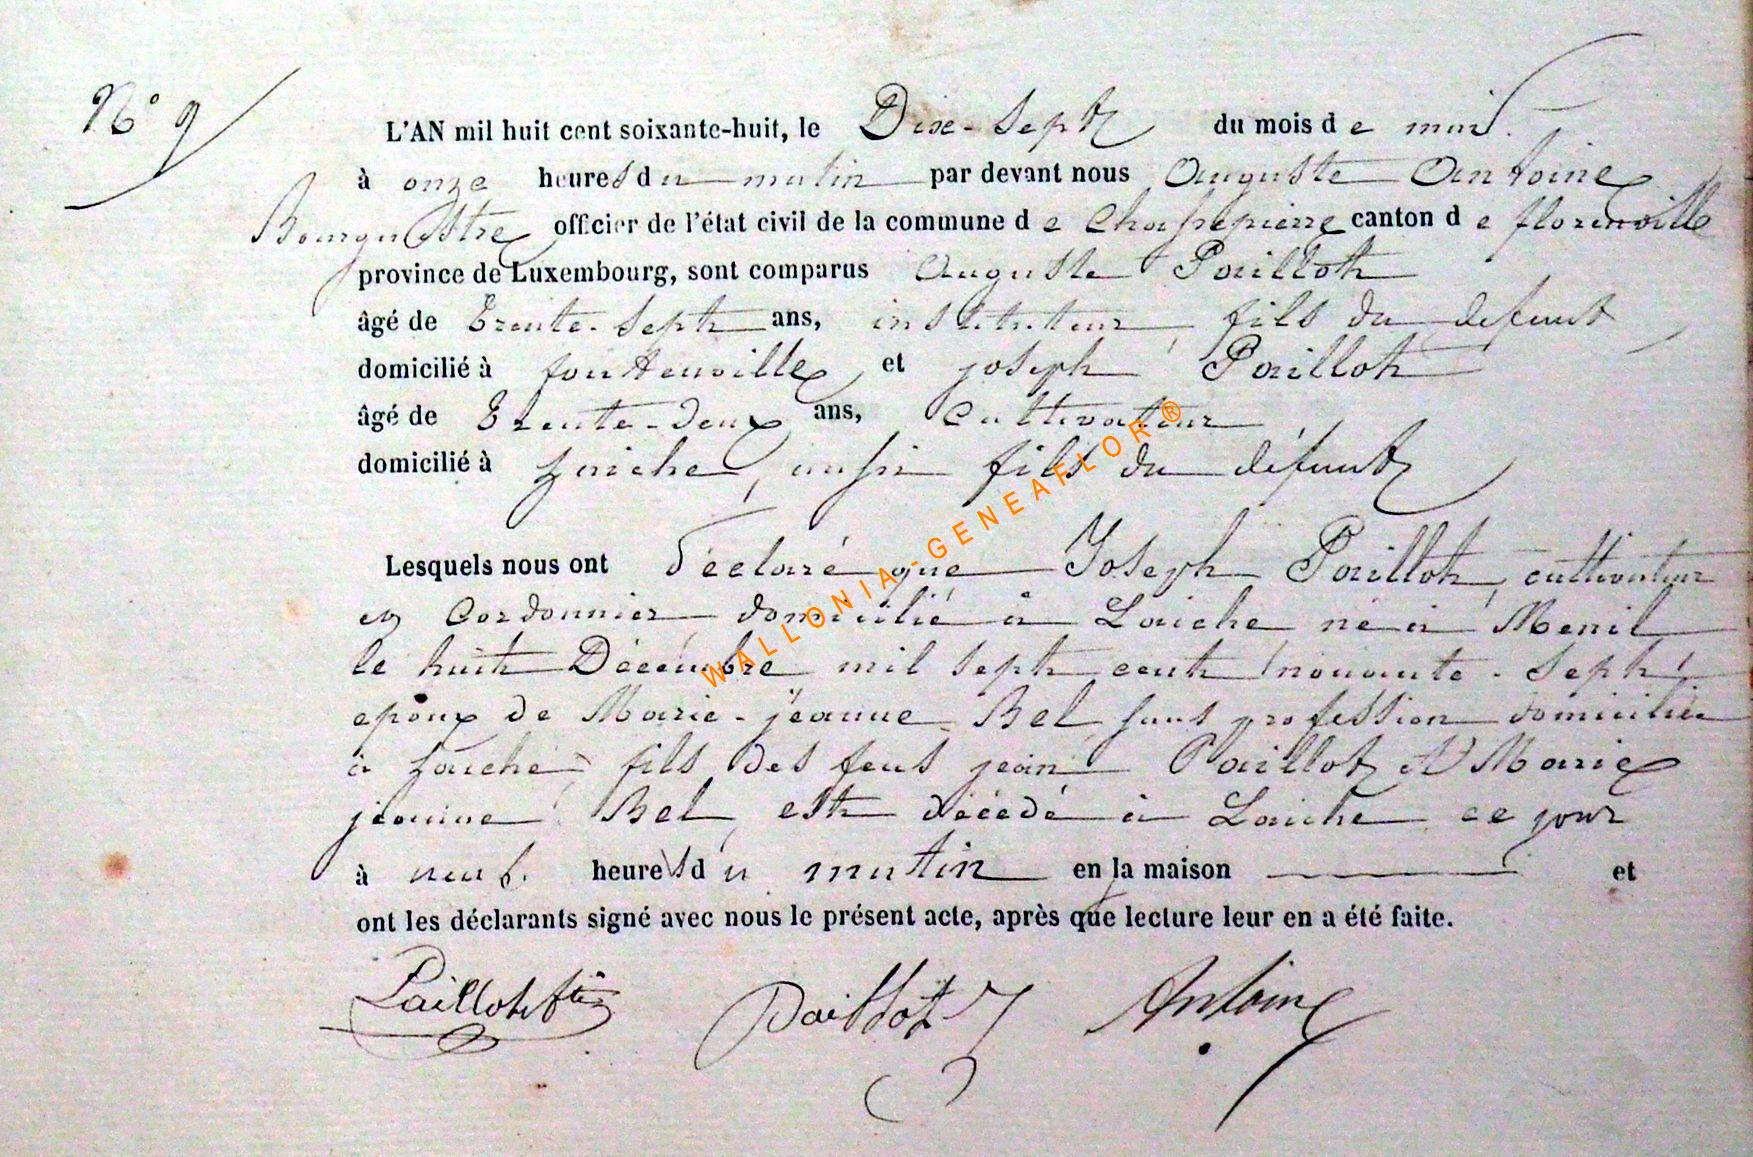 N° 9
L'AN mil huit cent soixante-huit, le Dixe-Sept du mois de mai
à onze heures du matin par devant nous Auguste Antoine
Bourgmestre officier de l'état civil de la commune de Chassepierre canton de florenville
province de Luxembourg, sont comparus Auguste Paillot
âgé de Trente-Sept ans, instituteur, fils du defunt
domicilié à fontenoille, et joseph Paillot
âgé de Trente-Deux ans, Cultivateur
domicilié à Laiche, aussi fils du défunt
Lesquels nous ont Déclaré que Joseph Paillot, cultivateur
et Cordonnier, domicilié à Laiche né à Menil
le huit Décembre mil sept cent nonante-Sept,
epoux de Marie-jeanne Bel, sans profession domiciliée
à Laiche, fils des feus jean Paillot et Marie
jeanne Bel, est décédé à Laiche ce jour
à neuf heures du matin en la maison et
ont les déclarants signé avec nous le présent acte, après que lecture leur en a été faite.
Paillot Paillot J Antoine
WALLONIA-GENEAFLOR®